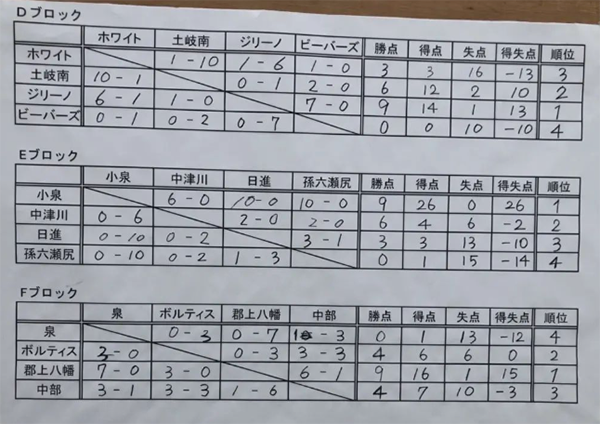 Dブロック
ホワイト 土岐南 ジリーノ ビーバーズ 勝点 得点 失点 得失点 順位
ホワイト 1-10 1-6 1-0 3 3 16 -13 3
土岐南 10-1 0-1 2-0 6 12 2 10 2
ジリーノ 6-1 1-0 7-0 9 14 1 13 1
ビーバーズ 0-1 0-2 0-7 0 0 10 -10 4
Eブロック
小泉 中津川 日進 孫六瀬尻 勝点 得点 失点 得失点 順位
小泉 6-0 10-0 10-0 9 26 0 26 1
中津川 0-6 2-0 2-0 6 4 6 -2 2
日進 0-10 0-2 3-1 3 3 13 -10 3
孫六瀬尻 0-10 0-2 1-3 0 1 15 -14 4
Fブロック
泉 ボルティス 郡上八幡 中部 勝点 得点 失点 得失点 順位
泉 0-3 0-7 1-3 0 1 13 -12 4
ボルティス 3-0 0-3 3-3 4 6 6 0 2
郡上八幡 7-0 3-0 6-1 9 16 1 15 1
中部 3-1 3-3 1-6 4 7 10 -3 3